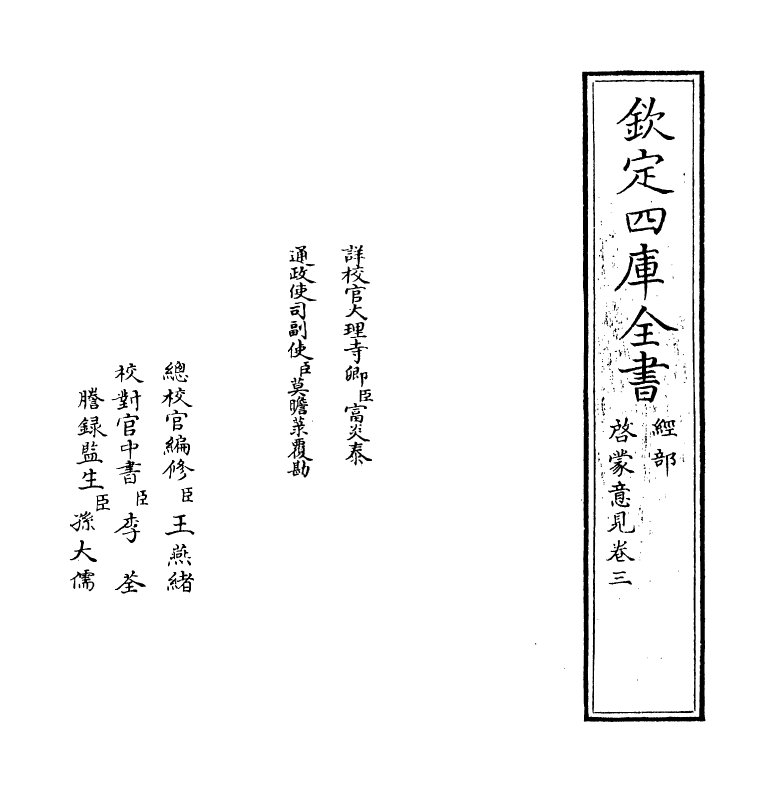 欽定四庫全書
經部
啓蒙意見卷三
詳校官大理寺卿臣富炎泰
通政使司副使臣莫瞻菉覆勘
總校官編修臣王燕緒
校對官中書臣李荃
謄録監生臣孫大儒